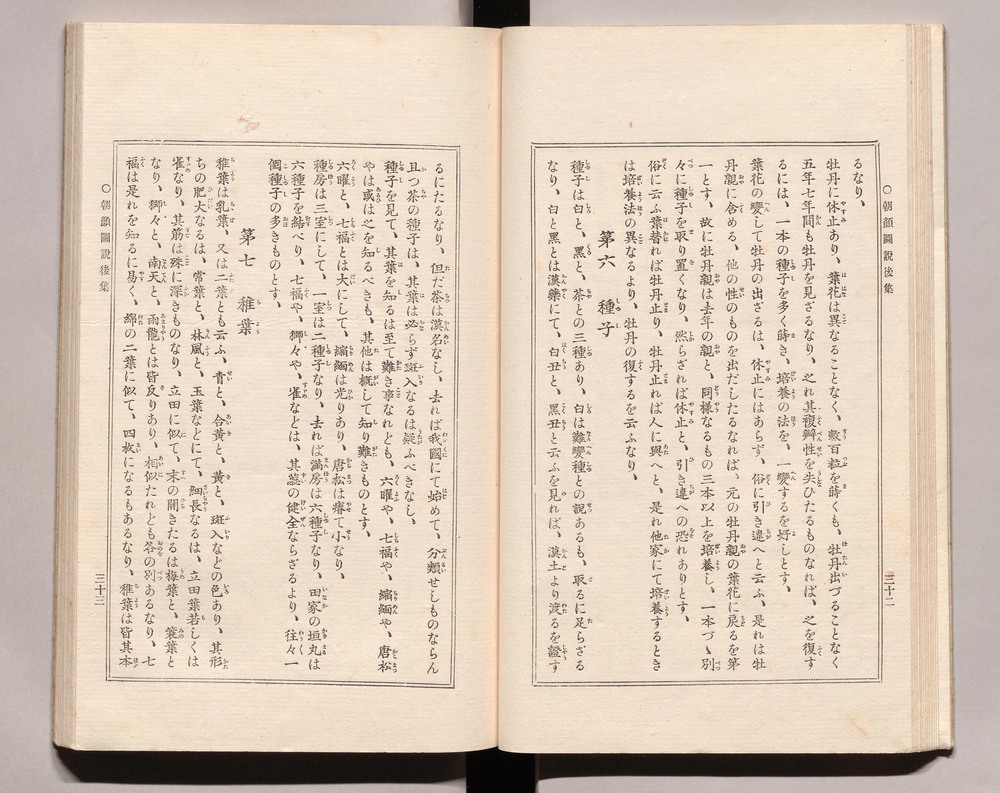 ○朝顔圖說後集
三十二
るなり、
牡丹に休止あり、葉花は異なることなく、數百粒を蒔くも、牡丹出づることなく
五年七年間も牡丹を見ざるなり、之れ其複瓣性を失ひたるものなれば、之を復す
るには、一本の種子を多く蒔き、培養の法を、一變するを好しとす、
葉花の變して牡丹の出ざるは、休止にはあらず、俗に引き違へと云ふ、是れは牡
丹親に含める、他の性のものを出だしたるなれば、元の牡丹親の葉花に戻るを第
一とす、故に牡丹親は去年の親と、同樣なるもの三本以上を培養し、一本づゝ別
々に種子を取り置くなり、然らざれば休止と、引き違への恐れありとす、
俗に云ふ葉替れば牡丹止り、牡丹止れば人に與へと、是れ他家にて培養するとき
は培養法の異なるより、牡丹の復するを云ふなり、
第六 種子
種子は白と、黑と、茶との三種あり、白は難變種との說あるも、取るに足らざる
なり、白と黑とは漢藥にて、白丑と、黑丑と云ふを見れば、漢土より渡るを證す
るにたるなり、但だ茶は漢名なし、去れば我國にて始めて、分類せしものならん
且つ茶の種子は、其葉は必らず斑入なるは疑ふべきなし、
種子を見て、其葉を知るは至て難き事なれども、六曜や、七福や、縮緬や、唐松
やは或は之を知るべきも、其他は概して知り難きものとす、
六曜と、七福とは大にして、縮緬は光りあり、唐松は瘠て小なり、
種房は三室にして、一室は二種子なり、去れば滿房は六種子なり、田家の垣丸は
六種子を結べり、七福や、獅々や、雀などは、其蕊の健全ならざるより、往々一
個種子の多きものとす、
第七 稚葉
稚葉は乳葉、又は二葉とも云ふ、青と、合黃と、黃と、斑入などの色あり、其形
ちの肥大なるは、常葉と、林風と、玉葉などにて、細長なるは、立田葉若しくは
雀なり、其筋は殊に深きものなり、立田に似て、末の開きたるは梅葉と、簑葉と
なり、獅々と、南天と、雨龍とは皆反りあり、相似たれども各の別あるなり、七
福は是れを知るに易く、綿の二葉に似て、四枚になるもあるなり、稚葉は皆其本
○朝顔圖說後集
三十三